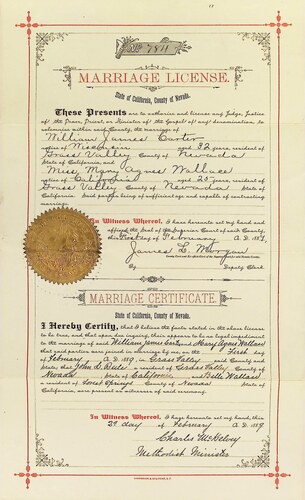 No 7811
MARRIAGE LICENSE.
State of California, County of Nevada.
These Presents are to authorize and license any Judge, Justice
of the Peace, Priest, or Minister of the Gospel of any denomination, to
solemnize within said County, the marriage of
William James Carter
native of Wisconsin aged 32 years resident of
Grass Valley County of Nevada
State of California, and
Miss Mary Agnes Wallace
native of California aged 25 years resident of
Grass Valley County of Nevada State of
California. Said parties being of sufficient age and capable of contracting
marriage.
In Witness Whereof, I have hereunto set my hand and
affixed the Seal of the Superior Court of said County,
this First day of February A.D. 1889.
James L. Morgan
By Deputy Clerk
MARRIAGE CERTIFICATE.
State of California, County of Nevada.
I Hereby Certify, that I believe the facts stated in the above license
to be true, and that upon due inquiry, there appears to be no legal impediment
to the marriage of said William James Carter and Mary Agnes Wallace
that said parties were joined in marriage by me, on the First day
of February A.D. 1889, in Grass Valley said County and
State; that John S. a resident of Grass Valley County of
Nevada State of California, and Belle Wallace
a resident of Springs County of Nevada State of
California, were present as witnesses of said ceremony.
In Witness Whereof, I have hereunto set my hand, this
2d day of February A.D. 1889
Charles McKelvey
Methodist Minister